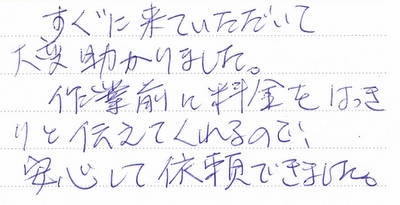 すぐに来ていただいて
大変助かりました。
作業前に料金をはっき
りと伝えてくれるので、
安心して依頼できました。